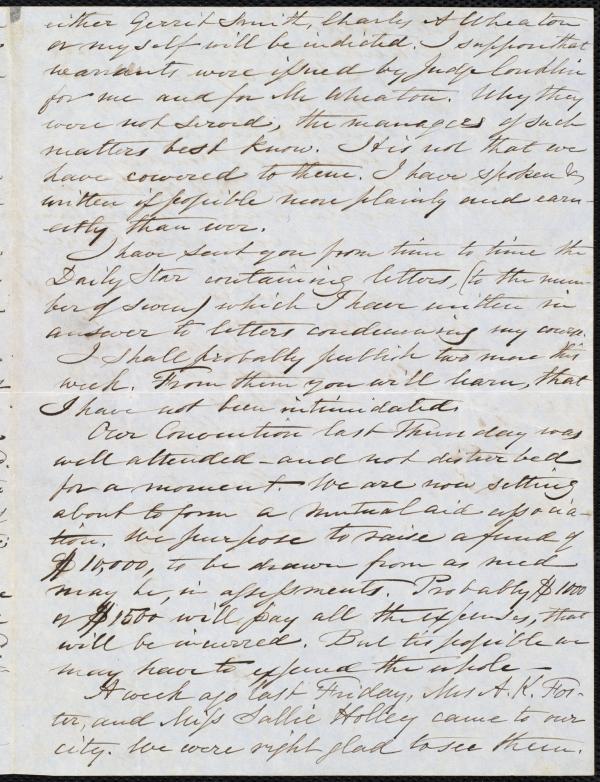 either Gerrit Smith, Charles A Wheaton
or myself will be indicted. I suppose that
warrants were issued by Judge Conklin
for me and for Mr Wheaton. Why they
were not served, the managers of such
matters best know. It is not that we
have cowered to them. I have spoken &
written if possible more plainly and earn-
estly than ever.
I have sent you from time to time the
Daily Star containing letters, (to the num-
ber of seven) which I have written in
answer to letters condemning my course.
I shall probably publish two more this
week. From them you will learn, that
I have not been intimidated.
Our Convention last Thursday was
well attended and not disturbed
for a moment. We are now setting
about to form a mutual aid associa-
tion. We purpose to raise a fund of
$10,000, to be drawn from as need
may be, in assessments. Probably $1000
or $1500 will pay all the expenses, that
will be incurred. But tis possible we
may have to expend the whole—
A week ago last Friday, Mrs A. K. Fos-
ter, and Miss Sallie Holley came to our
city. We were right glad to see them.